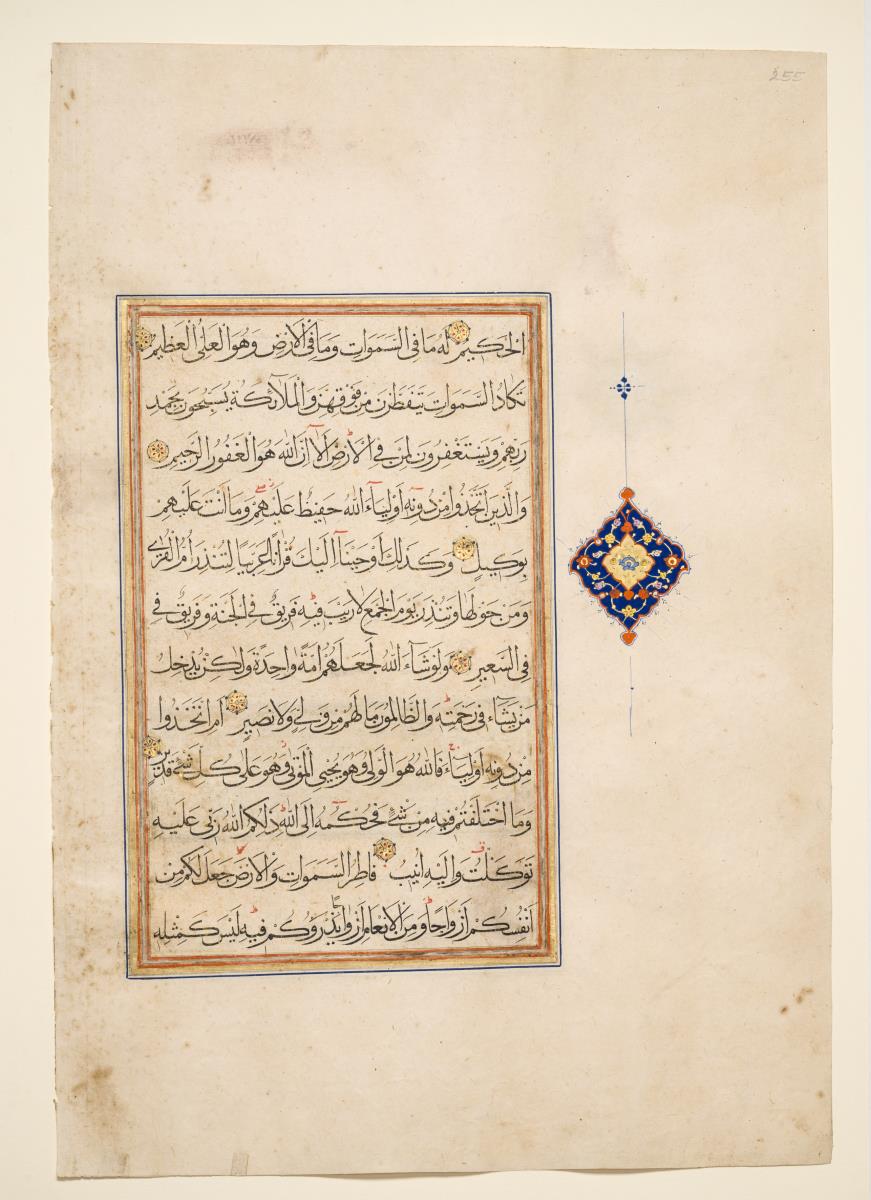 255
الحكيم له ما في السموات وما في الارض وهو العلي العظيم
تكاد السموات يتفطرن من فوقهن والملائكة يسبحون بحمد
ربهم ويستغفرون لمن في الارض الا ان الله هو الغفور الرحيم
والذين اتخذوا من دونه اولياء الله حفيظ عليهم وما انت عليهم
بوكيل وكذلك اوحينا اليك قرانا عربيا لتنذر ام القرى
ومن حولها وتنذر يوم الجمع لا ريب فيه فريق في الجنة وفريق في
في السعير ولو شاء الله لجعلهم امة واحدة ولكن يدخل
من يشاء في رحمته والظالمون ما لهم من ولي ولا نصير ام اتخذوا
من دونه اولياء فالله هو الولي وهو يحيي الموتى وهو على كل شئ قدير
وما اختلفتم فيه من شئ فحكمه الى الله ذلكم الله ربي عليه
توكلت واليه انيب فاطر السموات والارض جعل لكم من
انفسكم ازواجا ومن الانعام ازواجا يذرؤكم فيه ليس كمثله